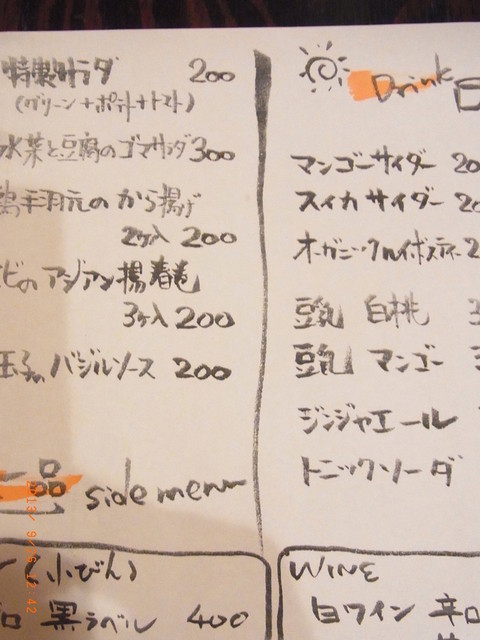 特製サラダ 200
(グリーン+ポテト+トマト)
水菜と豆腐のゴマサラダ 300
鶏手羽元のから揚げ
2ケ入 200
ビのアジアン揚春巻
3ケ入 200
玉子のバジルソース 200
一品 side menu
(小びん)
黒ラベル 400
Drink
マンゴーサイダー 20
スイカサイダー 20
オーガニックルイボスティー 2
豆乳 白桃
豆乳 マンゴー
ジンジャエール
トニックソーダ
WINE
白ワイン 辛口